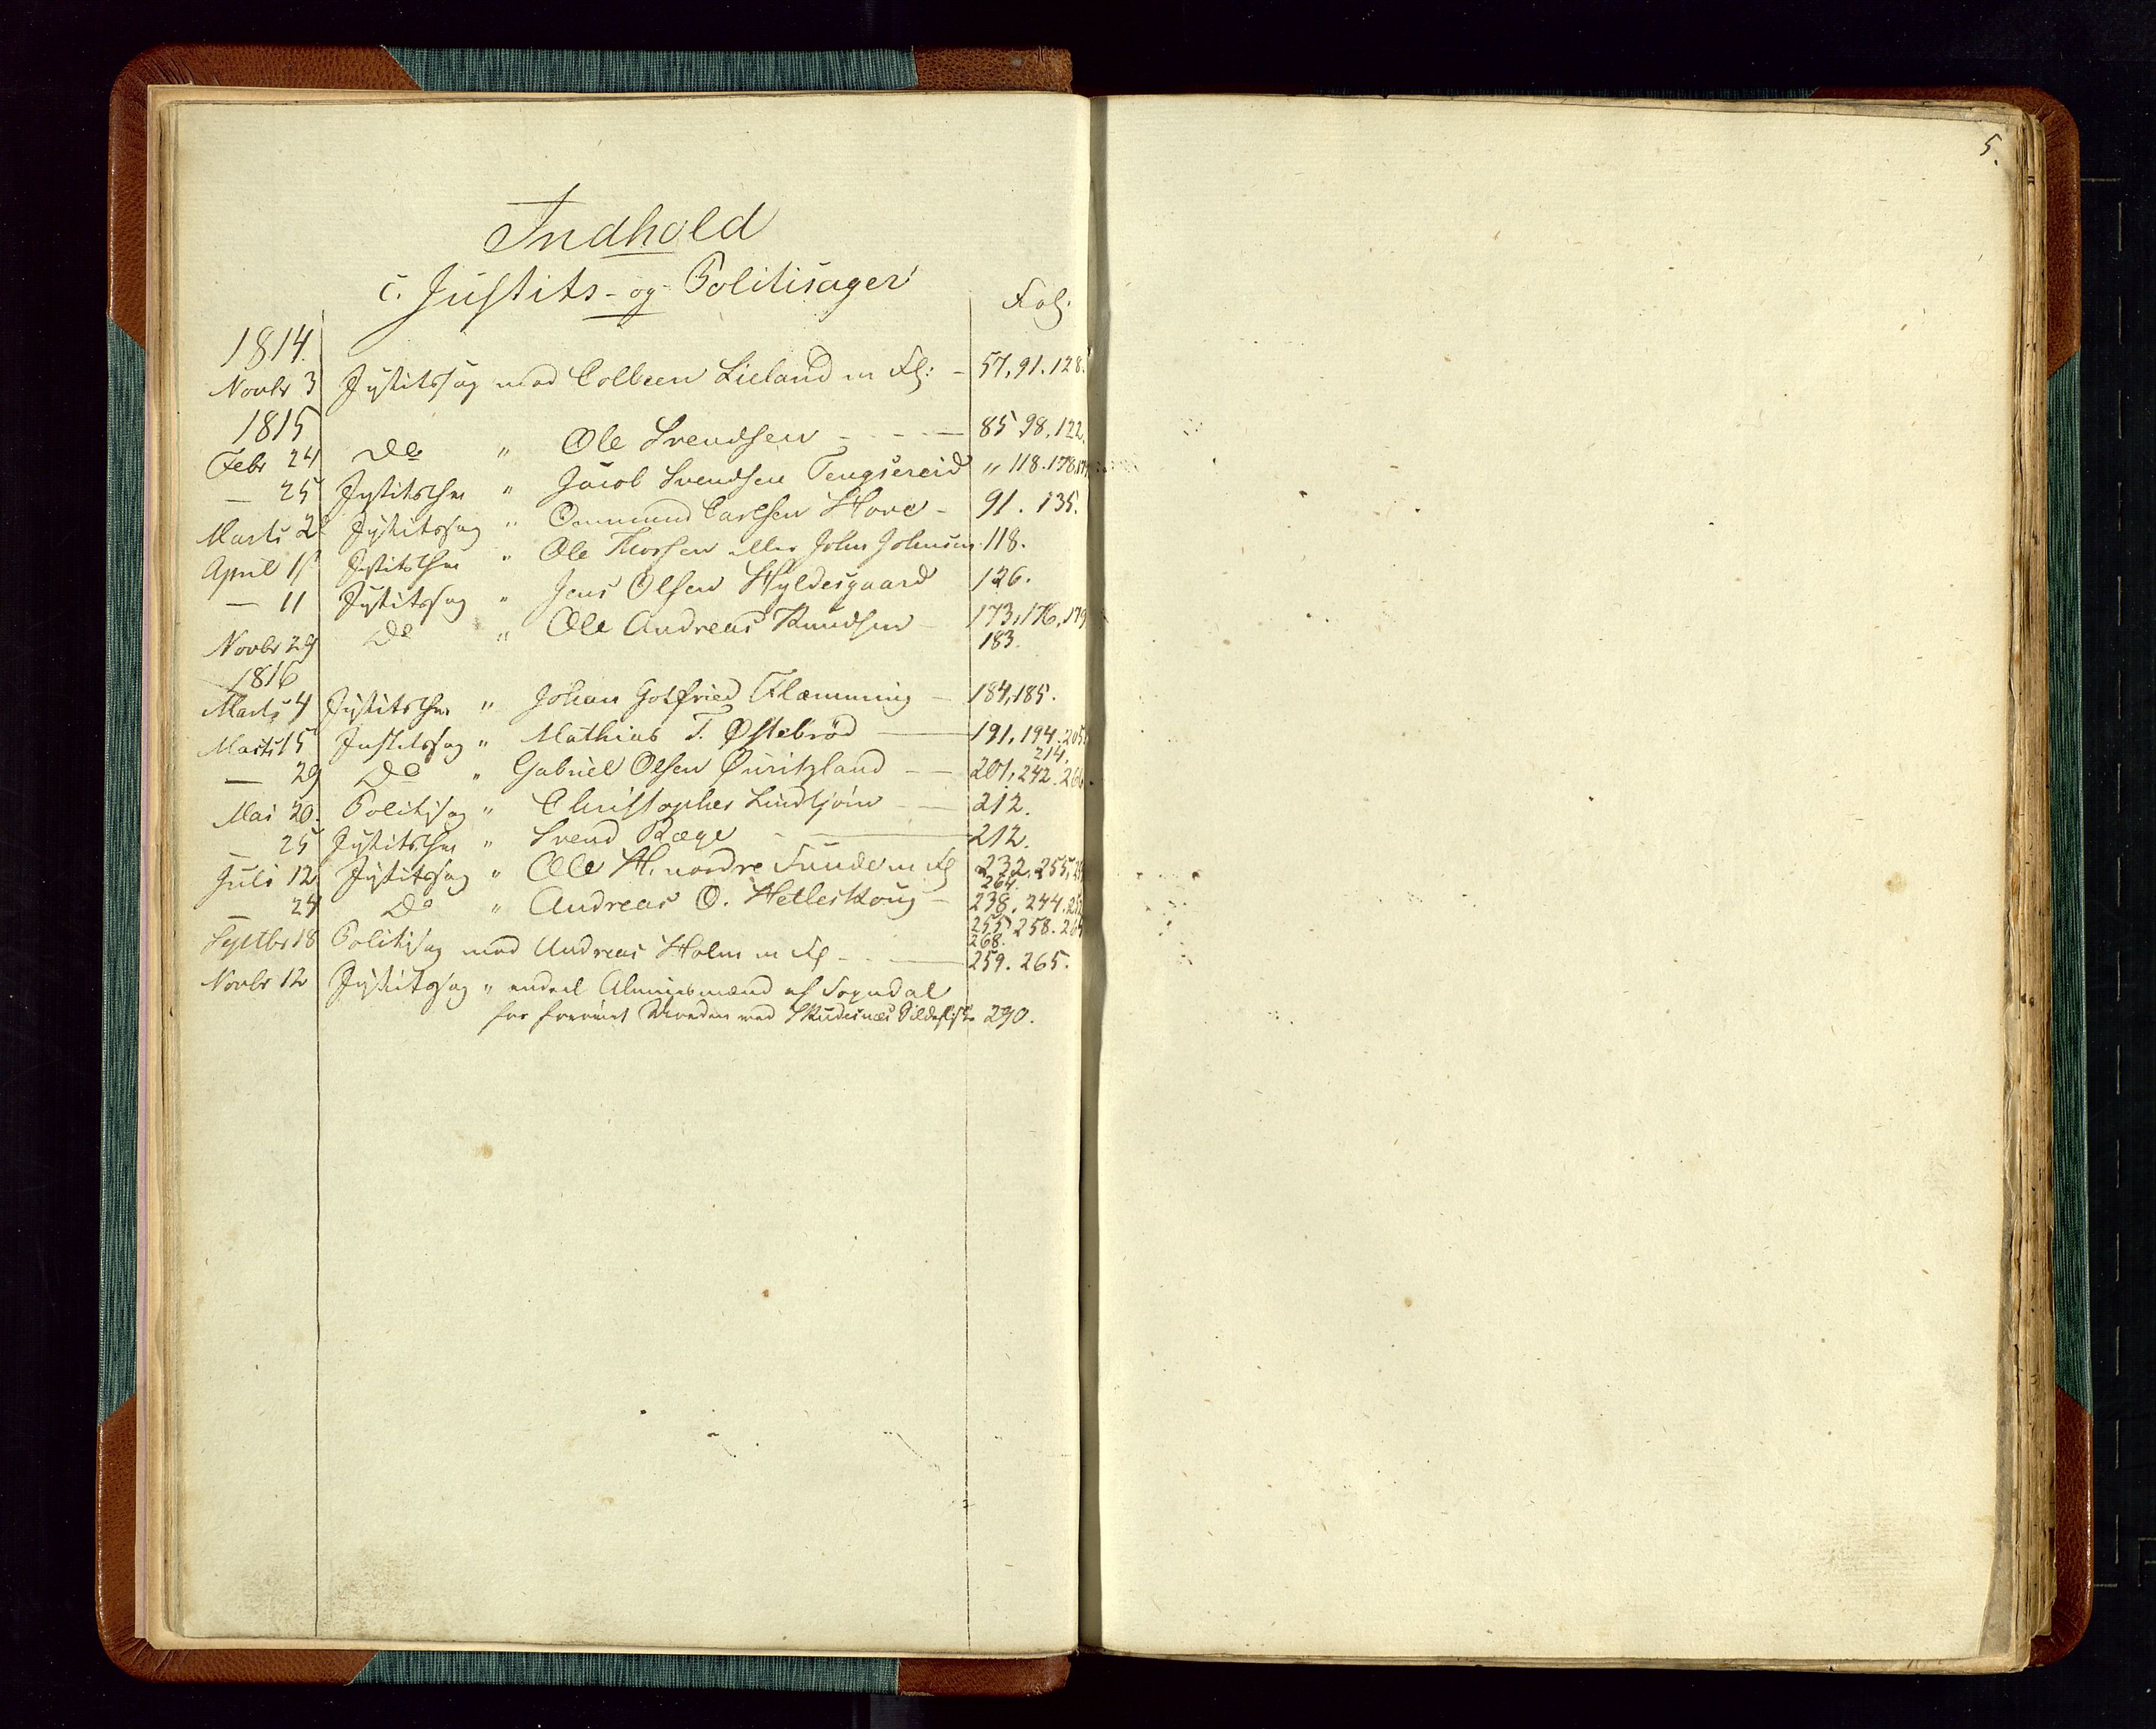 5.
Indhold
c. Justits- og Politisager
Fol:
1814.
Novbr 3 Justitssag mod Colbeen Lieland m Fl: - 57, 91. 128.
1815
Febr 24 Do " Ole Svendsen - - - 85 98. 122.
— 25 " Jacob Svendsen Tengsereid " 118. 178.
Marts 2 Justitssag " Ommund Carlsen Hove - 91. 135.
April 1 " Ole Thorsen eller John Johnsen 118.
— 11 Justitssag " Jens Olsen Hyldesgaard 126.
Novbr 29 Do " Ole Andreas Knudsen - 173, 176, 179
183.
1816
Marts 4 " Johan Gotfried Flemming - 184, 185.
Marts 15 Justitssag " Mathias T. Østebröd — 191, 194. 205
214.
— 29 Do " Gabriel Olsen - - 201, 242. 266.
Mai 20. Politisag " Christopher - - 212.
— 25 " Svend Ræge - — 212.
Juli 12 Justitssag " Ole H. nordre Sunde m Fl 232. 255,
264.
— 24 Do " Andreas O. Hetleskoug - 238. 244.
255 258. 264
268.
Septbr 18 Politisag mod Andreas Holm m Fl - - — 259. 265.
Novbr 12 Justitssag " endeel Almuesmænd af Sogndal
for med Skudesnæs Sildefiske 290.